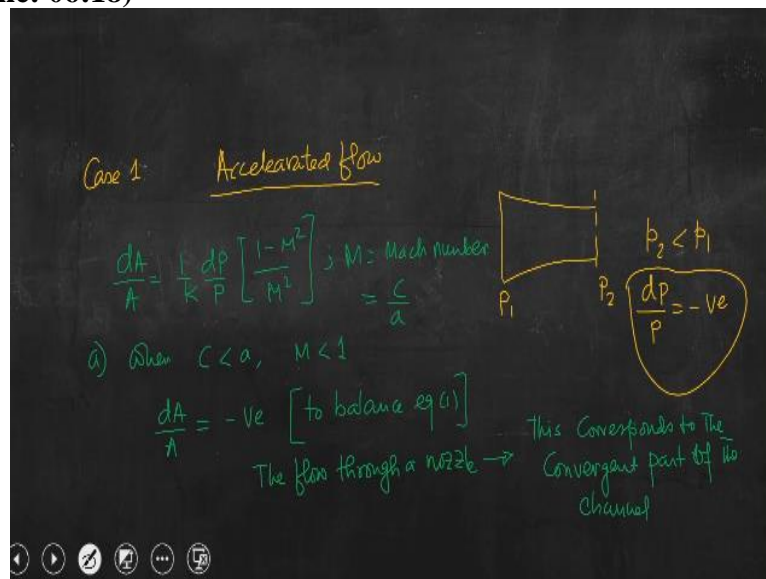 Case 1: Accelearated flow
dA/A = 1/k dP/P [1-M²/M²] ; M = Mach number
= C/a
P₁
P₂
p₂ < p₁
dP/P = -ve
a) When C < a, M < 1
dA/A = -ve [to balance eq (1)]
The flow through a nozzle → This Corresponds to The
Convergent part of the
Channel